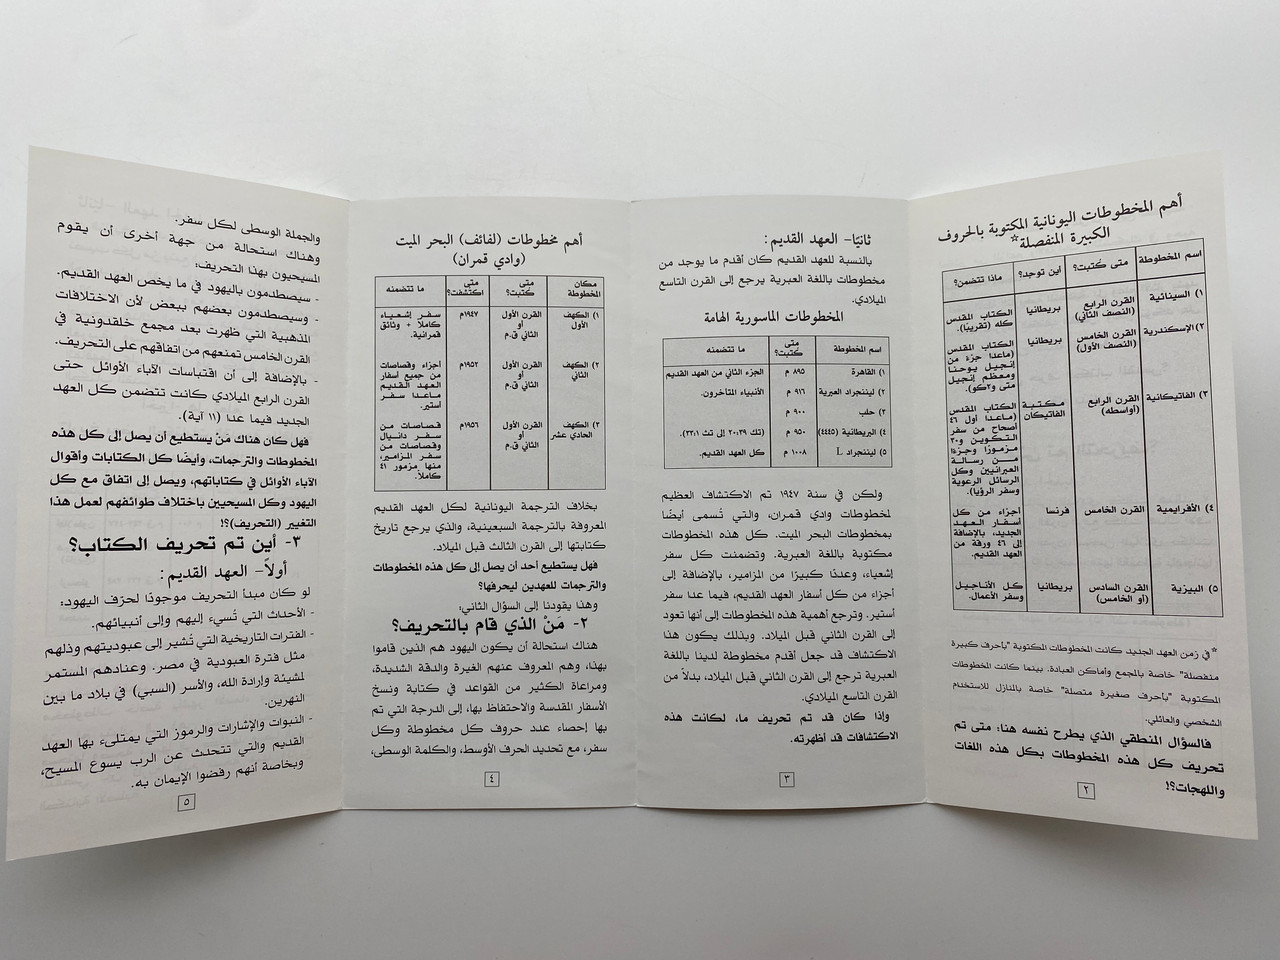 أهم المخطوطات اليونانية المكتوبة بالحروف
الكبيرة المنفصلة*
اسم المخطوطة | متى كتبت؟ | أين توجد؟ | ماذا تتضمن؟
١) السينائية | القرن الرابع (النصف الثاني) | بريطانيا | الكتاب المقدس كله (تقريبًا).
٢) الإسكندرية | القرن الخامس (النصف الأول) | بريطانيا | الكتاب المقدس (ماعدا جزء من إنجيل يوحنا ومعظم إنجيل متى و٢كو).
٣) الفاتيكانية | القرن الرابع (أواسطه) | مكتبة الفاتيكان | الكتاب المقدس (ماعدا أول ٤٦ أصحاح من سفر التكوين و٣٠ مزمورًا وجزءًا من رسالة العبرانيين وكل الرسائل الرعوية وسفر الرؤيا).
٤) الأفرايمية | القرن الخامس | فرنسا | أجزاء من كل أسفار العهد الجديد، بالإضافة إلى ٤٦ ورقة من العهد القديم.
٥) البيزية | القرن السادس (أو الخامس) | بريطانيا | كل الأناجيل وسفر الأعمال.
*في زمن العهد الجديد كانت المخطوطات المكتوبة "بأحرف كبيرة
منفصلة" خاصة بالمجمع وأماكن العبادة. بينما كانت المخطوطات
المكتوبة "بأحرف صغيرة متصلة" خاصة بالمنازل للاستخدام
الشخصي والعائلي.
فالسؤال المنطقي الذي يطرح نفسه هنا: متى تم
تحريف كل هذه المخطوطات بكل هذه اللغات
واللهجات؟!
٢
ثانيًا- العهد القديم:
بالنسبة للعهد القديم كان أقدم ما يوجد من
مخطوطات باللغة العبرية يرجع إلى القرن التاسع
الميلادي.
المخطوطات الماسورية الهامة
اسم المخطوطة | متى كتبت؟ | ما تتضمنه
١) القاهرة | ٨٩٥ م | الجزء الثاني من العهد القديم
٢) ليننجراد العبرية | ٩١٦ م | الأنبياء المتأخرون.
٣) حلب | ٩٠٠ م
٤) البريطانية (٤٤٤٥) | ٩٥٠ م | (تك ٢٠:٣٩ إلى تث ٣٣:١).
٥) ليننجراد L | ١٠٠٨ م | كل العهد القديم.
ولكن في سنة ١٩٤٧ تم الاكتشاف العظيم
لمخطوطات وادي قمران، والتي تُسمى أيضًا
بمخطوطات البحر الميت. كل هذه المخطوطات
مكتوبة باللغة العبرية. وتضمنت كل سفر
إشعياء، وعددًا كبيرًا من المزامير، بالإضافة إلى
أجزاء من كل أسفار العهد القديم، فيما عدا سفر
أستير. وترجع أهمية هذه المخطوطات إلى أنها تعود
إلى القرن الثاني قبل الميلاد. وبذلك يكون هذا
الاكتشاف قد جعل أقدم مخطوطة لدينا باللغة
العبرية ترجع إلى القرن الثاني قبل الميلاد، بدلاً من
القرن التاسع الميلادي.
وإذا كان قد تم تحريف ما، لكانت هذه
الاكتشافات قد أظهرته.
٣
أهم مخطوطات (لفائف) البحر الميت
(وادي قمران)
مكان المخطوطة | متى كتبت؟ | متى اكتشفت؟ | ما تتضمنه
١) الكهف الأول | القرن الأول أو الثاني ق.م | ١٩٤٧م | سفر إشعياء كاملاً + وثائق قمرانية.
٢) الكهف الثاني | القرن الأول أو الثاني ق.م | ١٩٥٢م | أجزاء وقصاصات من جميع أسفار العهد القديم ماعدا سفر أستير.
٣) الكهف الحادي عشر | القرن الأول أو الثاني ق.م | ١٩٥٦م | قصاصات من سفر دانيال وقصاصات من سفر المزامير، منها مزمور ٤١ كاملاً.
بخلاف الترجمة اليونانية لكل العهد القديم
المعروفة بالترجمة السبعينية، والذي يرجع تاريخ
كتابتها إلى القرن الثالث قبل الميلاد.
فهل يستطيع أحد أن يصل إلى كل هذه المخطوطات
والترجمات للعهدين ليحرفها؟
وهذا يقودنا إلى السؤال الثاني:
٢- مَنْ الذي قام بالتحريف؟
هناك استحالة أن يكون اليهود هم الذين قاموا
بهذا، وهم المعروف عنهم الغيرة والدقة الشديدة،
ومراعاة الكثير من القواعد في كتابة ونسخ
الأسفار المقدسة والاحتفاظ بها، إلى الدرجة التي تم
بها إحصاء عدد حروف كل مخطوطة وكل
سفر، مع تحديد الحرف الأوسط، والكلمة الوسطى،
٤
والجملة الوسطى لكل سفر.
وهناك استحالة من جهة أخرى أن يقوم
المسيحيون بهذا التحريف:
- سيصطدمون باليهود في ما يخص العهد القديم.
- وسيصطدمون بعضهم ببعض لأن الاختلافات
المذهبية التي ظهرت بعد مجمع خلقدونية في
القرن الخامس تمنعهم من اتفاقهم على التحريف.
- بالإضافة إلى أن اقتباسات الآباء الأوائل حتى
القرن الرابع الميلادي كانت تتضمن كل العهد
الجديد فيما عدا (١١ آية).
فهل كان هناك مَنْ يستطيع أن يصل إلى كل هذه
المخطوطات والترجمات، وأيضًا كل الكتابات وأقوال
الآباء الأوائل في كتاباتهم، ويصل إلى اتفاق مع كل
اليهود وكل المسيحيين باختلاف طوائفهم لعمل هذا
التغيير (التحريف)؟!
٣- أين تم تحريف الكتاب؟
أولاً- العهد القديم:
لو كان مبدأ التحريف موجودًا لحرَف اليهود:
- الأحداث التي تُسيء إليهم وإلى أنبيائهم.
- الفترات التاريخية التي تُشير إلى عبوديتهم وذلهم
مثل فترة العبودية في مصر. وعنادهم المستمر
لمشيئة وإرادة الله، والأسر (السبي) في بلاد ما بين
النهرين.
- النبوات والإشارات والرموز التي يمتلىء بها العهد
القديم والتي تتحدث عن الرب يسوع المسيح،
وبخاصة أنهم رفضوا الإيمان به.
٥